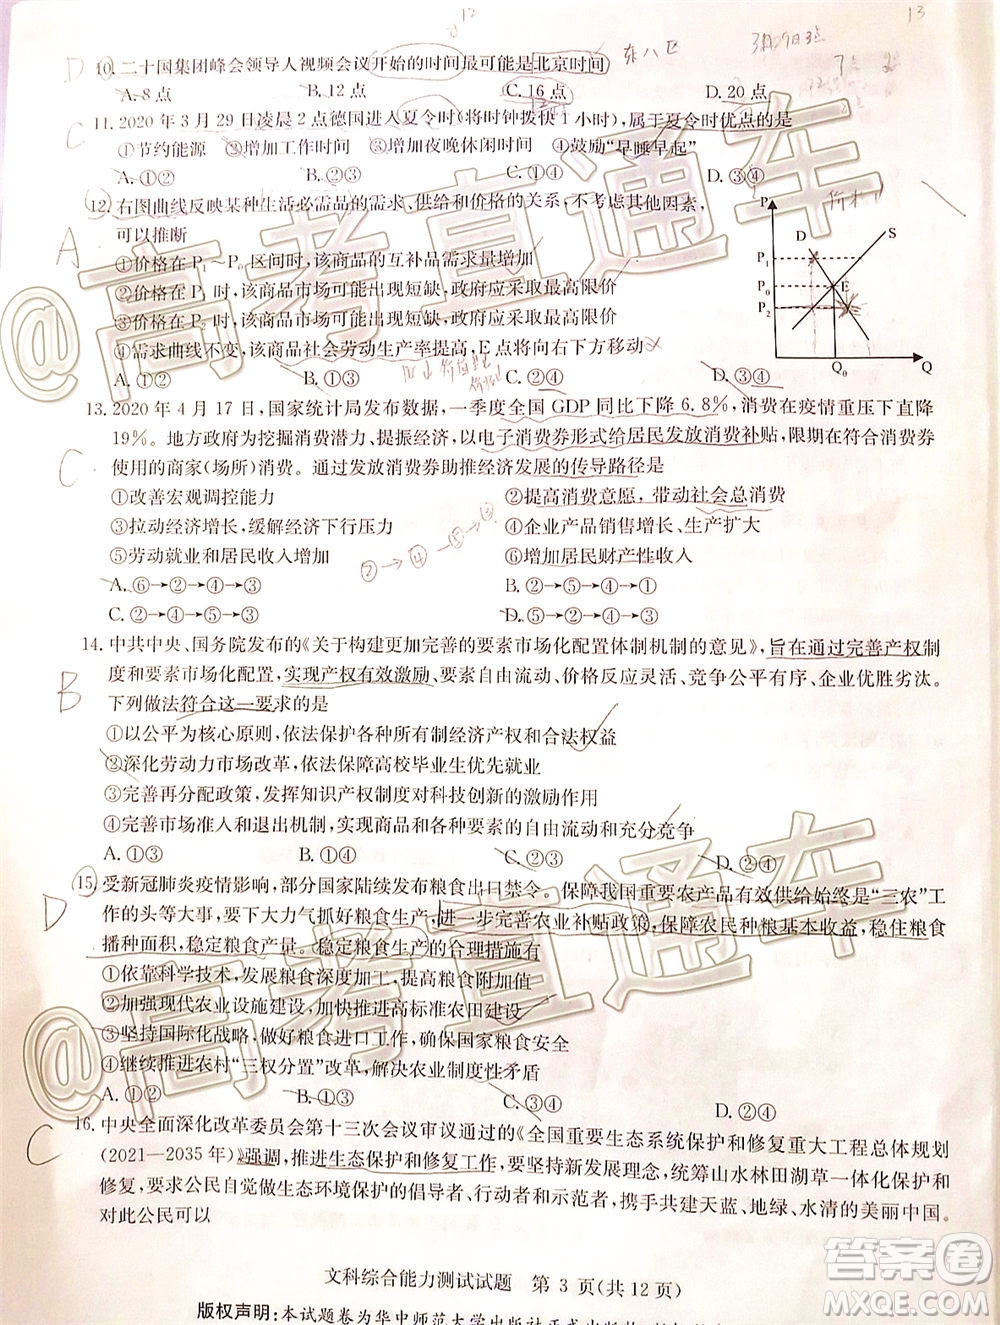 12
13
D
10. 二十国集团峰会领导人视频会议开始的时间最可能是北京时间
东八区
A. 8 点 B. 12 点 C. 16 点 D. 20 点
C
11. 2020 年 3 月 29 日凌晨 2 点德国进入夏令时(将时钟拨快 1 小时),属于夏令时优点的是
①节约能源 ②增加工作时间 ③增加夜晚休闲时间 ④鼓励“早睡早起”
A. ①② B. ①③ C. ②④ D. ③④
A
12. 右图曲线反映某种生活必需品的需求、供给和价格的关系,不考虑其他因素,
可以推断
①价格在 P₁~P₀ 区间时,该商品的互补品需求量增加
②价格在 P₁ 时,该商品市场可能出现短缺,政府应采取最高限价
③价格在 P₂ 时,该商品市场可能出现短缺,政府应采取最高限价
④需求曲线不变,该商品社会劳动生产率提高,E 点将向右下方移动
A. ①③ B. ①③ C. ②④ D. ③④
P
D
S
P₁
P₀
E
P₂
Q₀
Q
13. 2020 年 4 月 17 日,国家统计局发布数据,一季度全国 GDP 同比下降 6.8%,消费在疫情重压下直降
19%。地方政府为挖掘消费潜力、提振经济,以电子消费券形式给居民发放消费补贴,限期在符合消费券
C
使用的商家(场所)消费。通过发放消费券助推经济发展的传导路径是
①改善宏观调控能力 ②提高消费意愿,带动社会总消费
③拉动经济增长,缓解经济下行压力 ④企业产品销售增长、生产扩大
⑤劳动就业和居民收入增加 ⑥增加居民财产性收入
②→④→⑤→③
A. ⑥→②→④→③ B. ②→⑤→④→①
C. ②→④→⑤→③ D. ②→⑤→④→③
14. 中共中央、国务院发布的《关于构建更加完善的要素市场化配置体制机制的意见》,旨在通过完善产权制
度和要素市场化配置,实现产权有效激励、要素自由流动、价格反应灵活、竞争公平有序、企业优胜劣汰。
B
下列做法符合这一要求的是
①以公平为核心原则,依法保护各种所有制经济产权和合法权益
②深化劳动力市场改革,依法保障高校毕业生优先就业
③完善再分配政策,发挥知识产权制度对科技创新的激励作用
④完善市场准入和退出机制,实现商品和各种要素的自由流动和充分竞争
A. ①③ B. ①④ C. ②③ D. ②④
15. 受新冠肺炎疫情影响,部分国家陆续发布粮食出口禁令。保障我国重要农产品有效供给始终是“三农”工
D
作的头等大事,要下大力气抓好粮食生产,进一步完善农业补贴政策,保障农民种粮基本收益,稳住粮食
播种面积,稳定粮食产量。稳定粮食生产的合理措施有
①依靠科学技术,发展粮食深度加工,提高粮食附加值
②加强现代农业设施建设,加快推进高标准农田建设
③坚持国际化战略,做好粮食进口工作,确保国家粮食安全
④继续推进农村“三权分置”改革,解决农业制度性矛盾
A. ①③ B. ①④ C. ②③ D. ②④
16. 中央全面深化改革委员会第十三次会议审议通过的《全国重要生态系统保护和修复重大工程总体规划
C
(2021—2035 年)》强调,推进生态保护和修复工作,要坚持新发展理念,统筹山水林田湖草一体化保护和
修复,要求公民自觉做生态环境保护的倡导者、行动者和示范者,携手共建天蓝、地绿、水清的美丽中国。
对此公民可以
文科综合能力测试试题 第 3 页(共 12 页)
版权声明:本试题卷为华中师范大学出版社正式出版物
@高考直通车
@高考直通车
答案圈
MXQE.COM